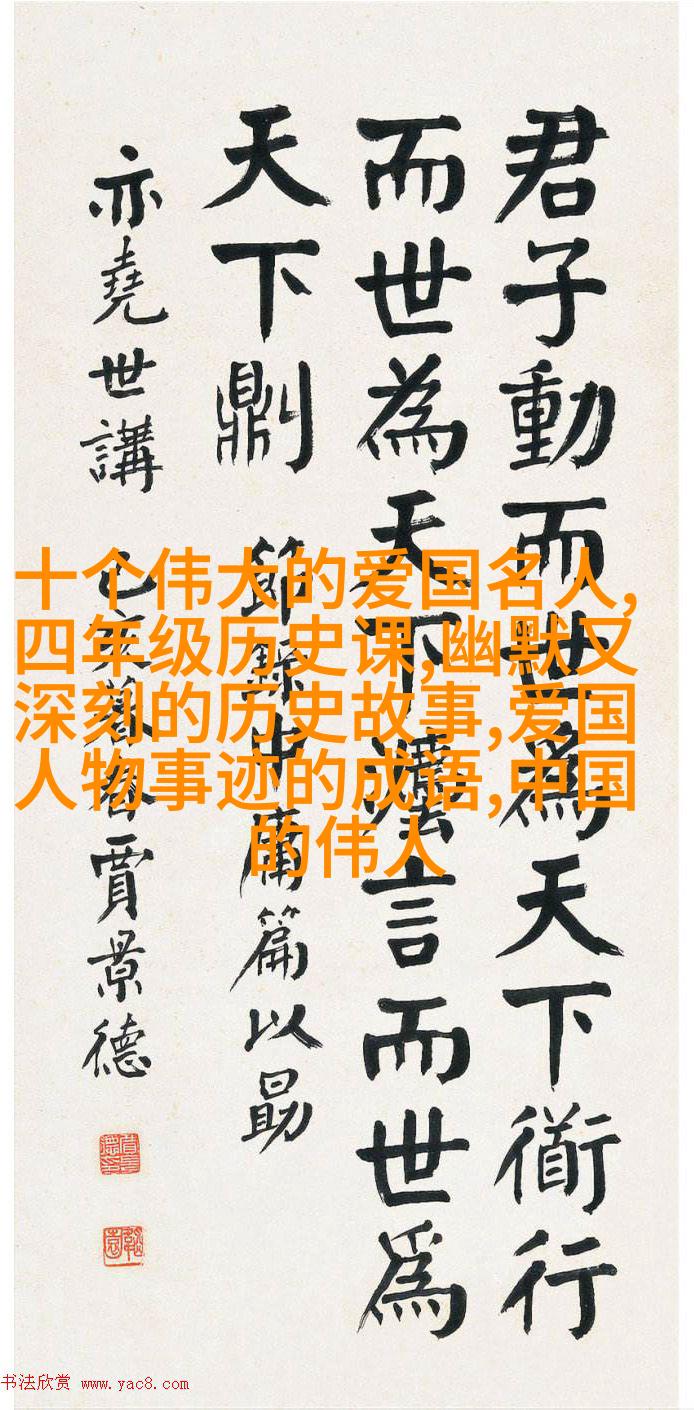 君子動而世爲天下衟行
而世為天下灋言而世爲
天下 節錄中庸篇以勗
亦堯世講 己亥暮春賈景德
十个伟大的爱国名人,
四年级历史课,幽默又
深刻的历史故事,爱国
人物事迹的成语,中国
的伟人
书法欣赏 www.yac8.com